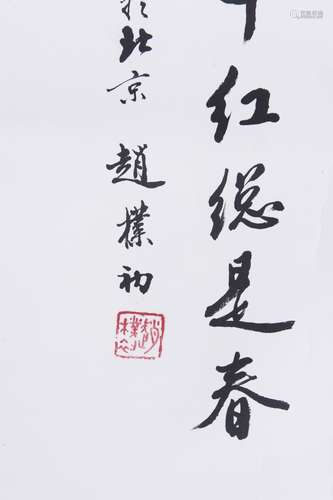 千红総是春
於北京 趙樸初
趙樸初